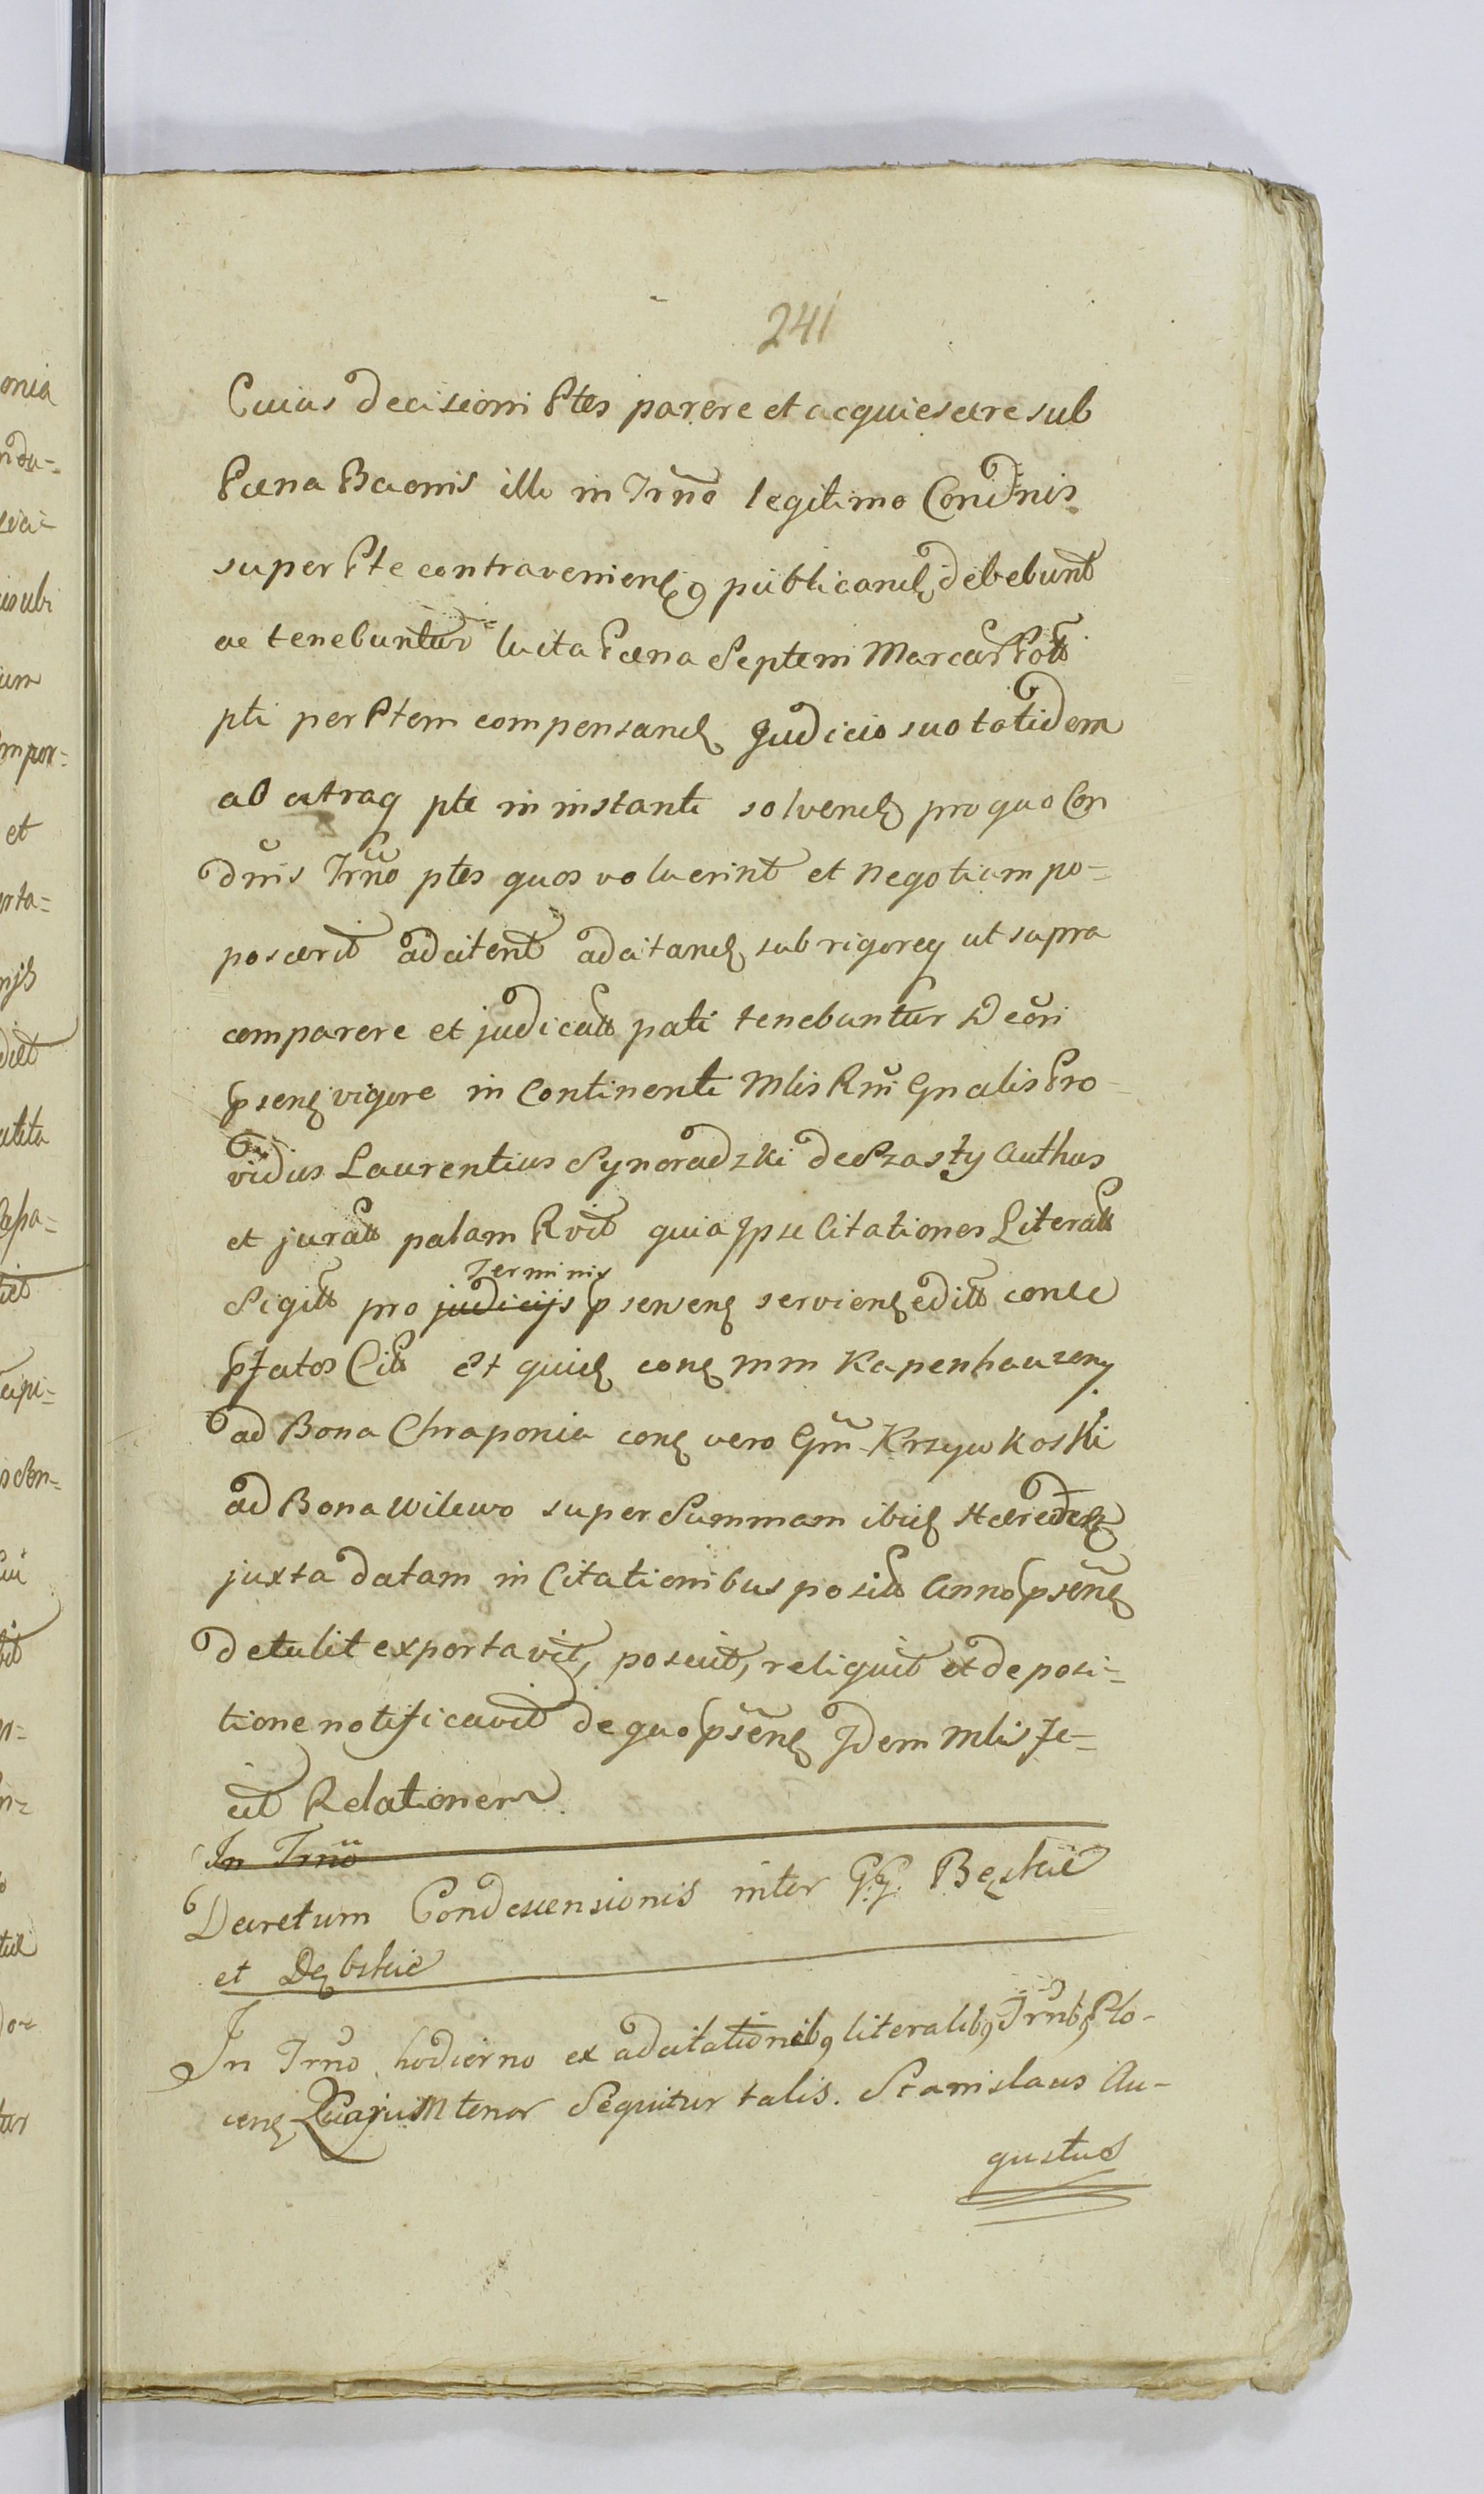 241
Cuius decisioni Ptes parere et acquiescere sub
Pæna Baonis illi in Trño legitimo Condnis
super Pte contravenienꝫ publicandꝫ debebunt
ac tenebuntur luita Pæna Septem Marcar Polł
pti per Ptem compensandꝫ Judicio suo totidem
ab utraq pte in instanti solvendꝫ pro quo Con
dñis Trño ptes quos voluerint et negotium po-
poscerit adcitent adcitandꝫ sub rigoreq ut supra
comparere et judicatt pati tenebuntur Decri
psenꝫ vigore in Continenti Mlis Rñi Gnalis Pro-
vidus Laurentius Synoradzki de Szasty Authus
et juratt palam Rvit quia Ipse Citationes Literatt
Terminis
Sigitt pro judicijs psensenꝫ servienꝫ editt conce
pfatos Citt Et quidꝫ conꝫ mm Kapenhauzeny
ad Bona Chraponia conꝫ vero Gm̃ Krzywkoski
ad Bona Wilewo super Summam ibidꝫ Hæredem
juxta datam in Citationibus positt Anno psenꝫ
detulit exportavit, posuit, reliquit et de posi-
tione notificavit de quo psenꝫ Idem Mlis fe-
cit Relationem
In Trño
Decretum Condescensionis inter G.G. Bęskie
et Dębskie
In Trño hodierno ex adcitationibꝫ literalibꝫ Trnibꝫ Plo-
cenꝫ Quarum tenor Sequitur talis. Stanislaus Au-
gustus
onia
et